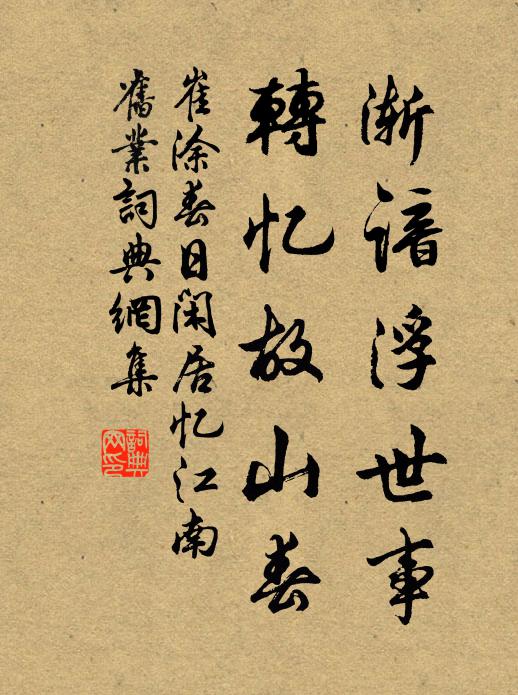 渐谙浮世事
轉忆故山春
崔涂春日閑居忆江南
舊業詞典網集
詞典
网印